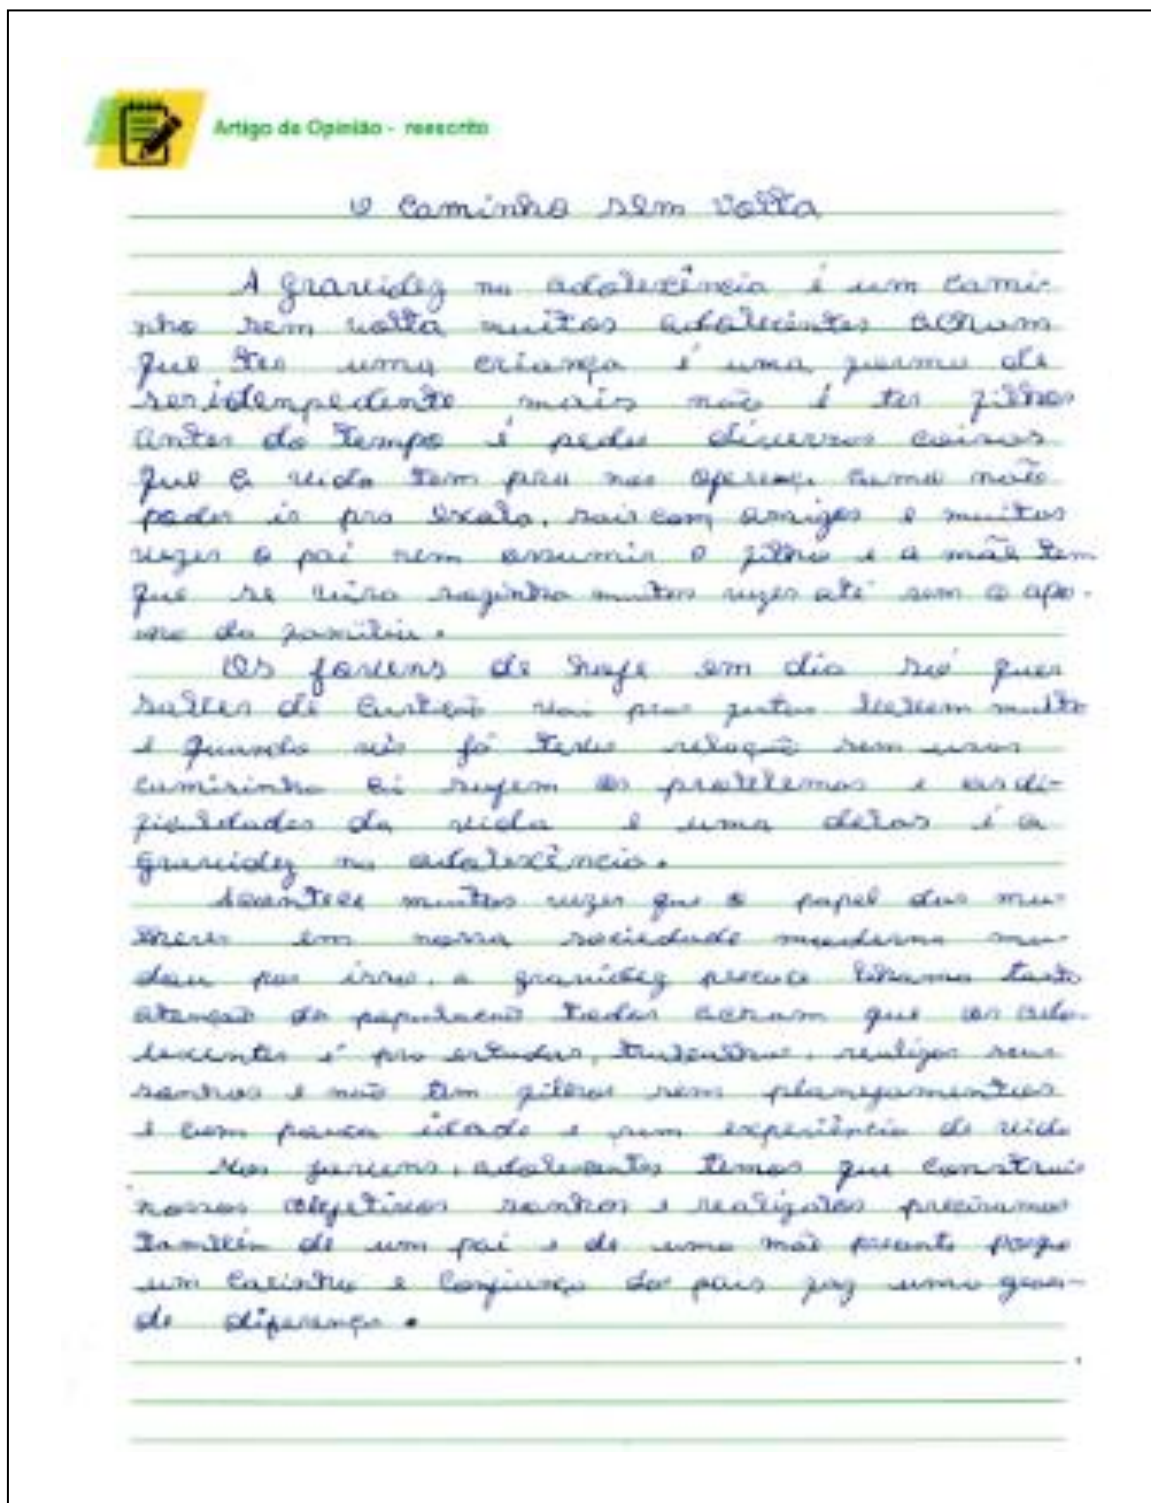 Artigo de Opinião - reescrito
O Caminho sem Volta
A gravidez na adolexência é um cami-
nho sem volta muitos adolecentes acham
que ter uma criança é uma forma de
ser idenpedente mais não é ter filhos
antes do tempo é peder diversas coisas
que a vida tem pra nos oferece, como não
poder ir pra escola, sair com amigos e muitas
vezes o pai nem assumir o filho e a mãe tem
que se vira sozinha muitas vezes até sem o apo-
io da familia.
Os jovens de hoje em dia só quer
saber de curtição vai pras festas bebem muito
e quando vês já teve relação sem usar
camisinha ai sugem os problemas e as di-
ficuldades da vida e uma delas é a
gravidez na adolexência.
Acontece muitas vezes que o papel das mu-
lheres em nossa sociedade moderna mu-
dou por isso, a gravidez precoce chama tanta
atenção da população todos acham que os ado-
lescentes é pra estudar, realizar seus
sonhos e não tem filhos sem planejamentos
e com pouca idade e sem experiência de vida
Nos jovens, adolescentes temos que construir
nossos objetivos sonhos e realizalos precisamos
também de um pai e de uma mãe presente porque
um carinho e confiança dos pais faz uma gran-
de diferença.